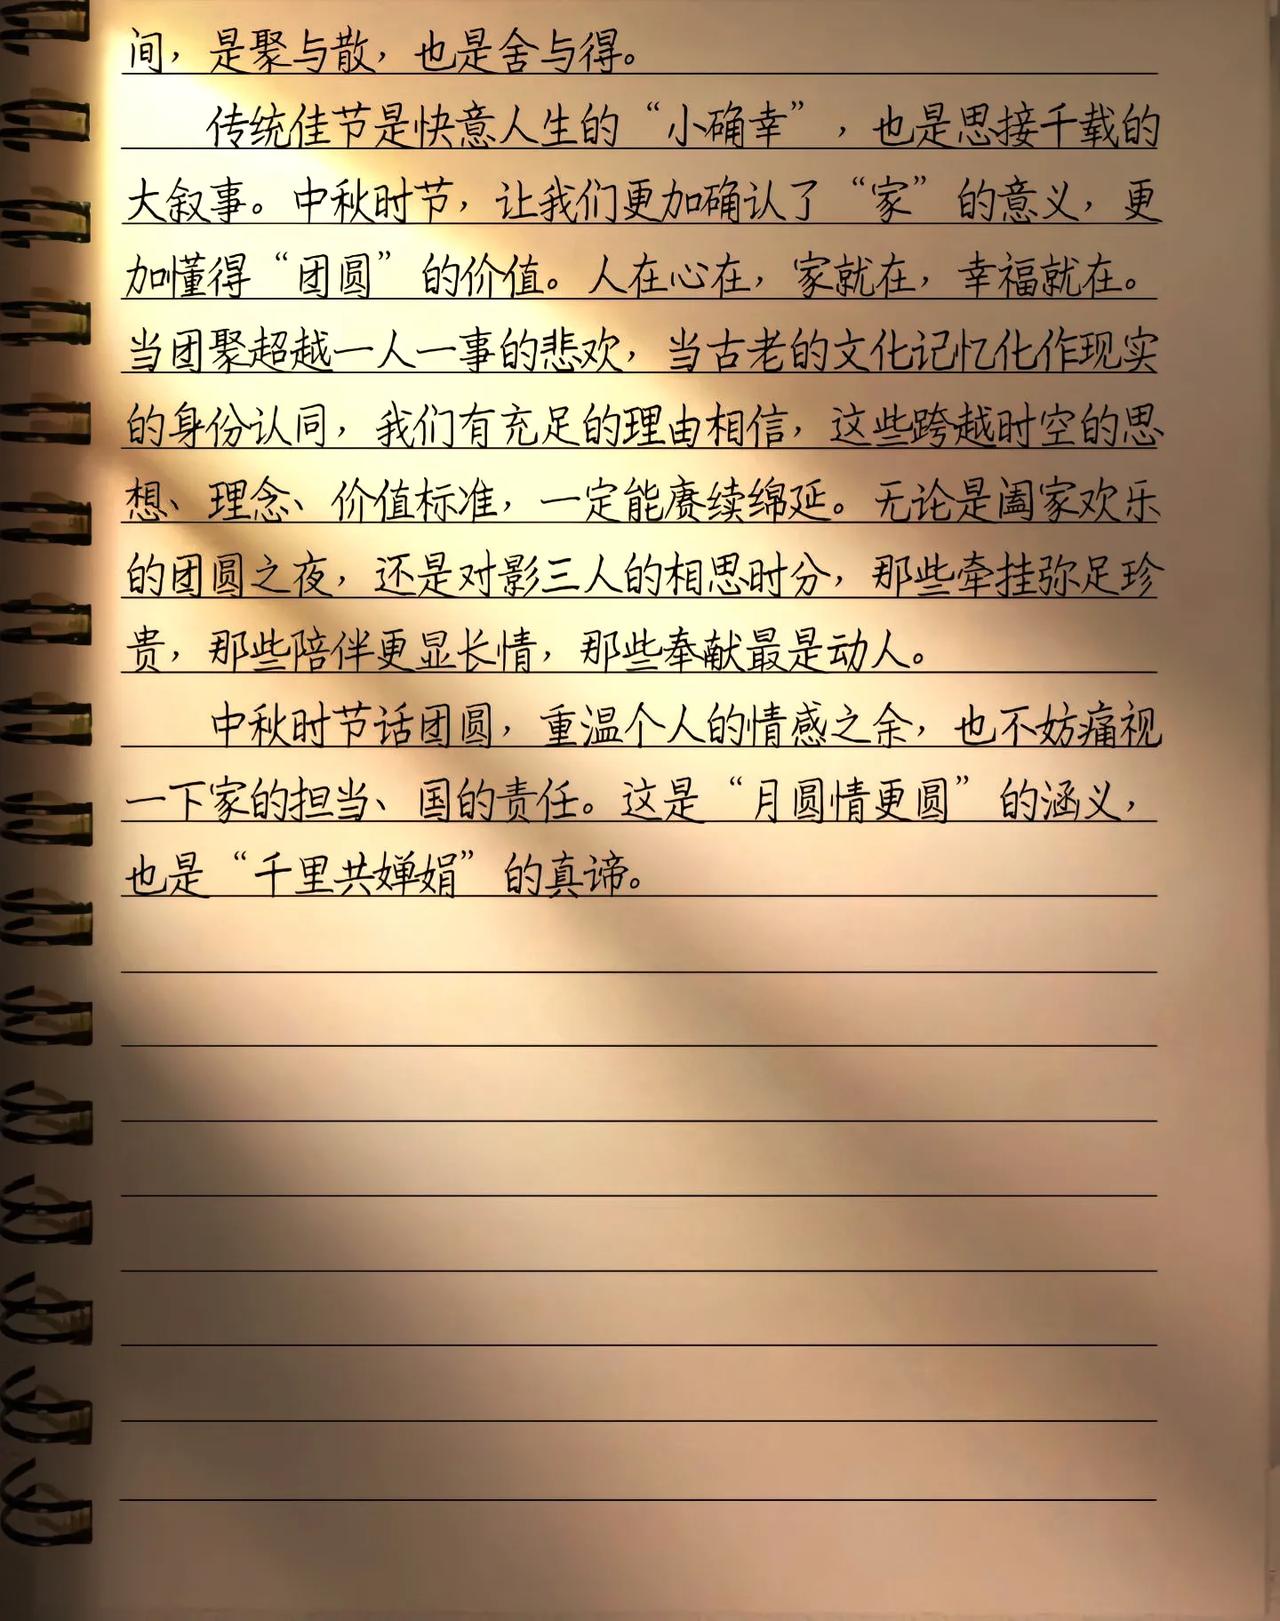 间，是聚与散，也是舍与得。
传统佳节是快意人生的“小确幸”，也是思接千载的
大叙事。中秋时节，让我们更加确认了“家”的意义，更
加懂得“团圆”的价值。人在心在，家就在，幸福就在。
当团聚超越一人一事的悲欢，当古老的文化记忆化作现实
的身份认同，我们有充足的理由相信，这些跨越时空的思
想、理念、价值标准，一定能赓续绵延。无论是阖家欢乐
的团圆之夜，还是对影三人的相思时分，那些牵挂弥足珍
贵，那些陪伴更显长情，那些奉献最是动人。
中秋时节话团圆，重温个人的情感之余，也不妨痛视
一下家的担当、国的责任。这是“月圆情更圆”的涵义，
也是“千里共婵娟”的真谛。